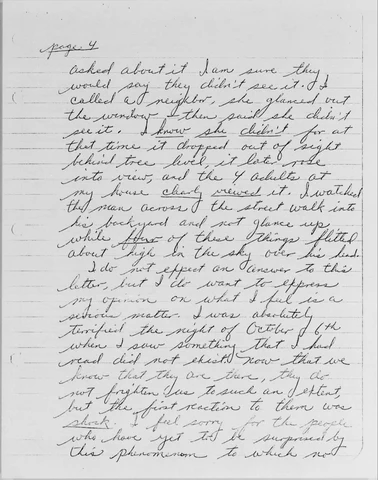 page 4
asked about it I am sure they
would say they didn't see it. I
called a neighbor, she glanced out
the window - then said she didn't
see it. I know she didn't for at
that time it dropped out of sight
behind tree level, it later rose
into view, and the 4 adults at
my house clearly viewed it. I watched
the man across the street walk into
his backyard and not glance up
while four of these things flitted
about high in the sky over his head.
I do not expect an answer to this
letter, but I do want to express
my opinion on what I feel is a
serious matter. I was absolutely
terrified the night of October 6th
when I saw something that I had
read did not exist. Now that we
know that they are there, they do
not frighten us to such an extent,
but the first reaction to them was
shock. I feel sorry for the people
who have yet to be surprised by
this phenomenon to which no